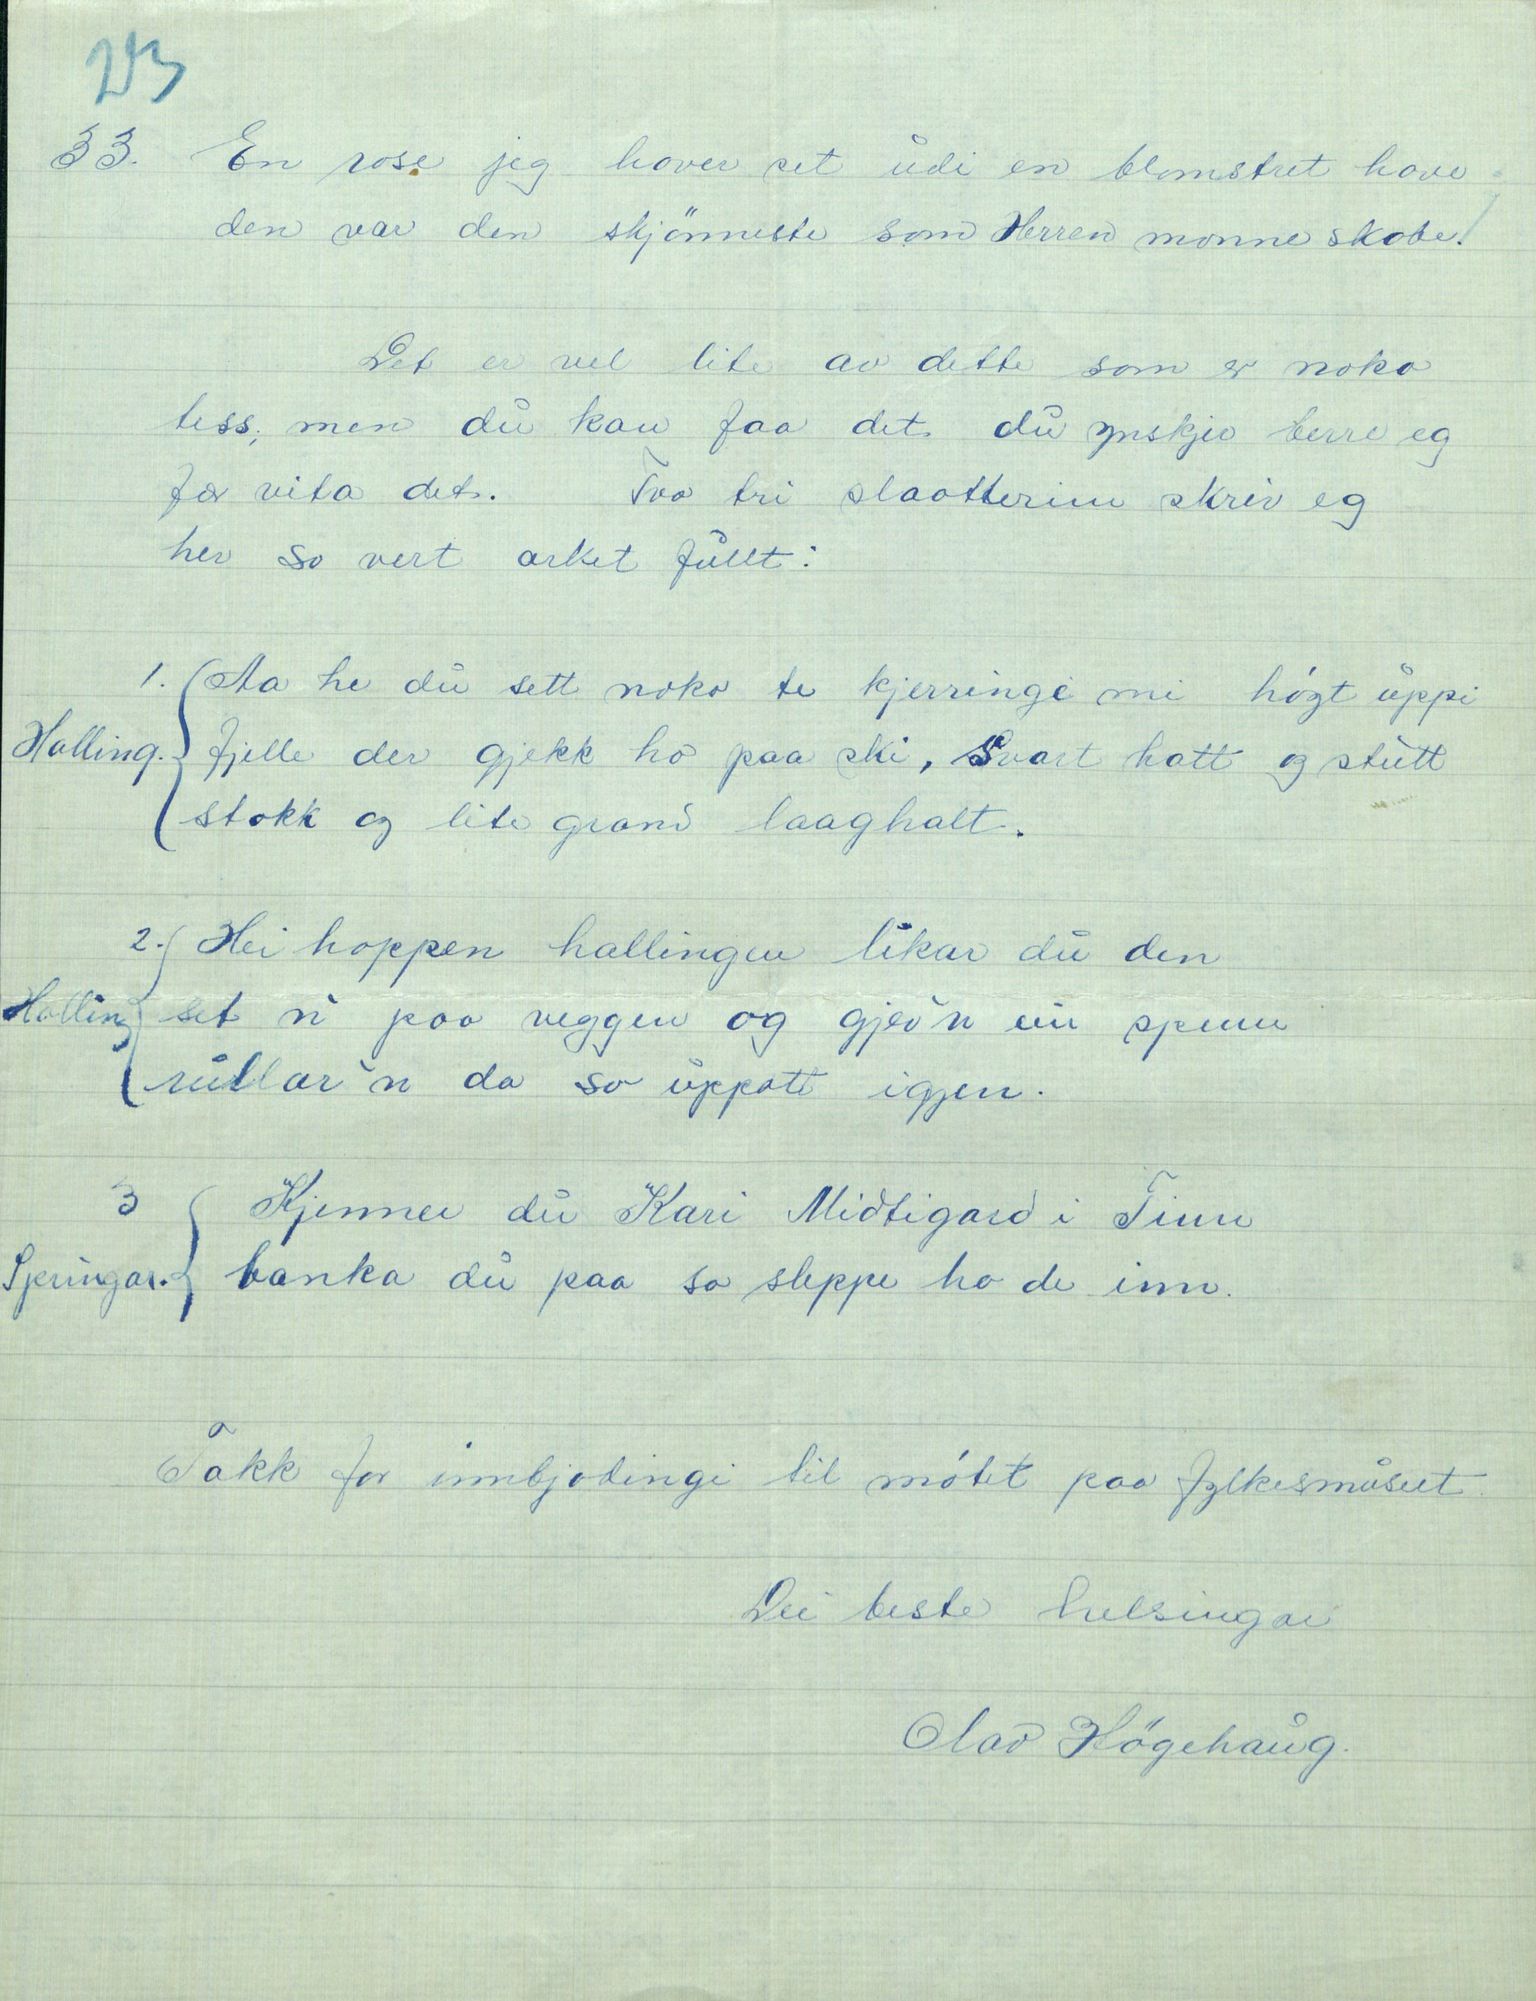 213
33. En rose jeg haver set udi en blomstret have
den var den skjönneste som Herren monne skabe!
Det er vel lite av dette som er noko
tess, men du kan faa det du ynskjer berre eg
fær vita det. Tvo tri slaatterim skriv eg
her so vert arket fullt:
1. Aa he du sett noko te kjerringi mi högt uppi
Halling. fjelle der gjekk ho paa ski, Svart hatt og stutt
stokk og lite grand laaghalt.
2. Hei hoppen hallingen likar du den
Halling set 'n paa veggen og gjev 'n ein spenn
rullar 'n da so uppatt igjen.
3 Kjenner du Kari Midtigard i Tinn
Springar. banka du paa so sleppe ho de inn.
Takk for innbjodingi til mötet paa fylkesmuseet.
Dei beste helsingar
Olav Högehaug.